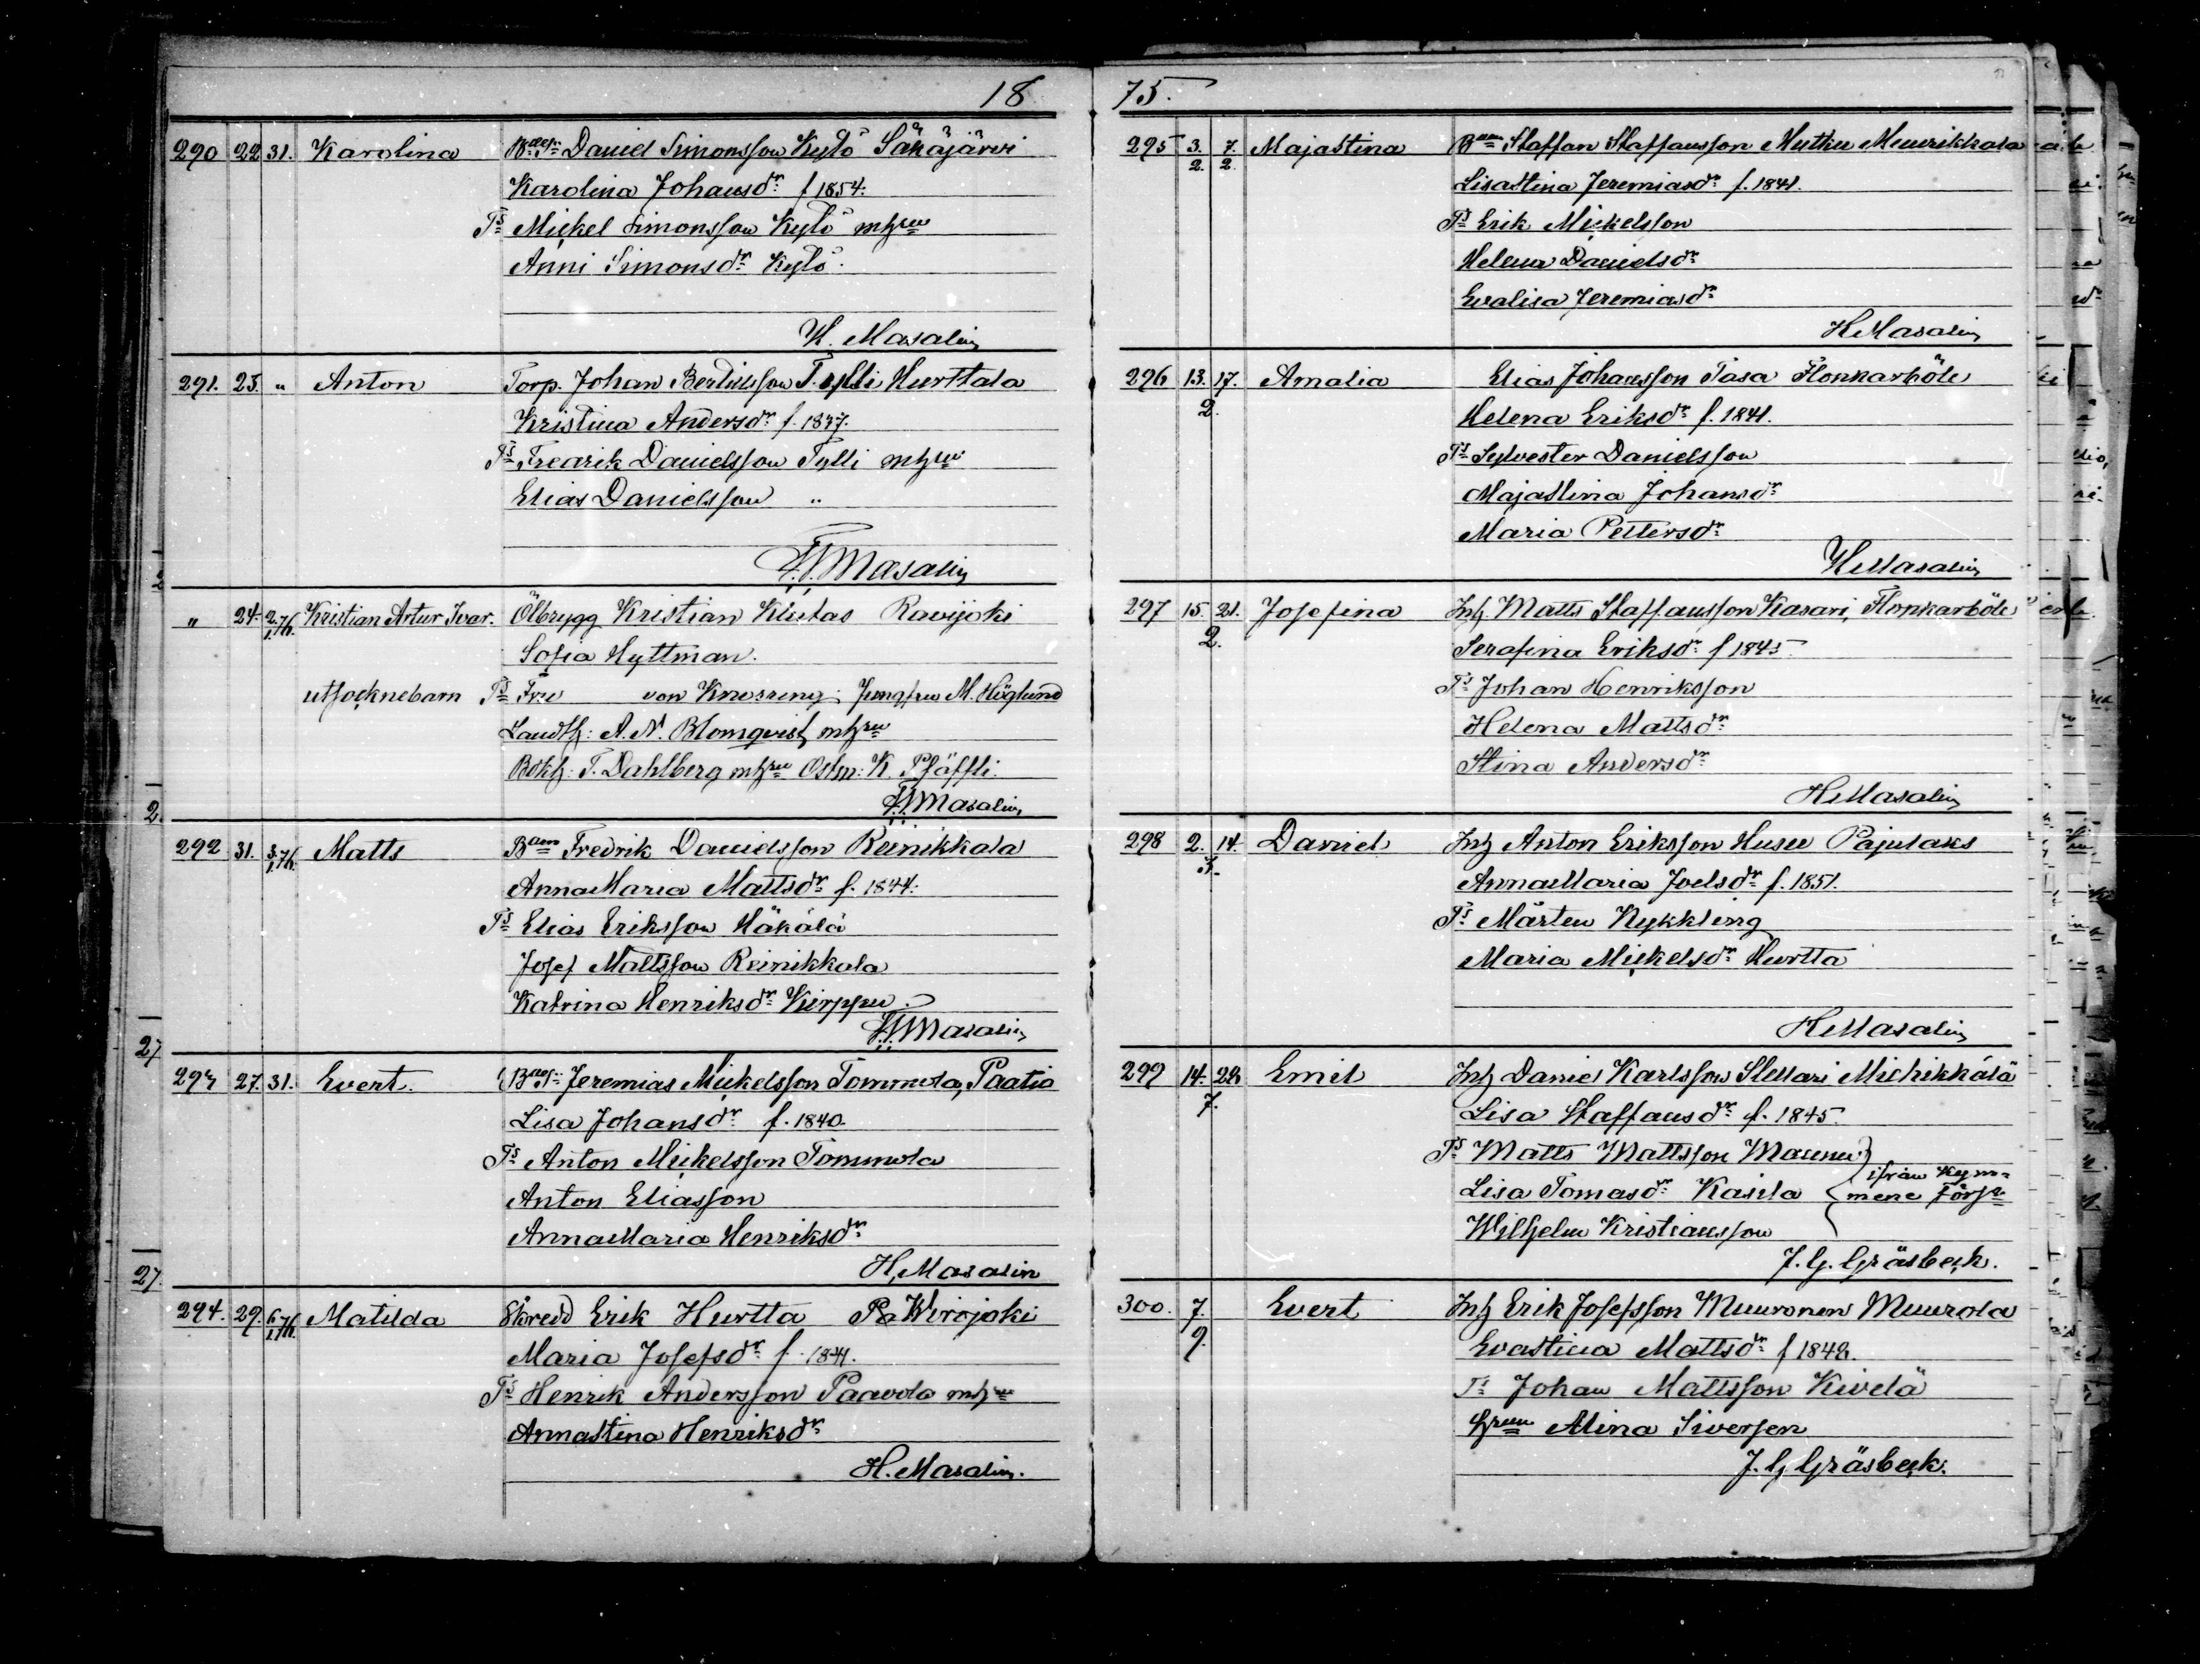 18
290 22 31. Karolina Daniel Simonsson Kylö Säkäjärvi
Karolina Johansdr f 1854.
Ts Mickel Simonsson Kylö mhru
Anni Simonsdr Kylö.
H. Masalin
291. 23. " Anton Torp. Johan Bertilsson Tylli Hurttala
Kristina Andersdr f. 1837.
Ts Fredrik Danielsson Tylli mhru
Elias Danielsson "
H. Masalin
" 24. 2/1.76. Kristian Artur Ivar. Ölbrygg Kristian Klutas Ravijoki
Sofia Hyttman.
utsocknebarn Ts Fru von Knorring; Jungfru M. Höglund
Landth: A. N. Blomqvist mhru
Bokh: F. Dahlberg mhru K. Pfäffli.
H. Masalin
292 31. 3/1.76. Matts Bdn Fredrik Danielsson Reinikkala
AnnaMaria Mattsdr f. 1844.
Ts Elias Eriksson Häkälä
Josef Mattsson Reinikkala
Katrina Henriksdr Kirppu
H. Masalin
293 27. 31. Evert. Jeremias Mickelsson Tommola, Paatio
Lisa Johansdr f. 1840.
Ts Anton Mickelsson Tommola
Anton Eliasson
AnnaMaria Henriksdr
H. Masalin
294. 29. 6/1.76. Matilda Skredd Erik Hurtta På Wirojoki
Maria Josefsdr f. 1841.
Ts Henrik Andersson Paavola mhru
Annastina Henriksdr
H. Masalin.
75.
295 3. 7. Majastina Staffan Staffansson Muthu Muurikkala
2. 2.
Lisastina Jeremiasdr f. 1841.
Ts Erik Mickelsson
Helena Danielsdr
Evalisa Jeremiasdr
H Masalin
296 13. 17. Amalia Elias Johansson Pasa Flonkarböle
2.
Helena Eriksdr f. 1841.
Ts Sylvester Danielsson
Majastina Johansdr
Maria Pettersdr
H Masalin
297 15. 21. Josefina Inh Matts Staffansson Kasari, Flonkarböle
2.
Serafina Eriksdr f 1845
Ts Johan Henriksson
Helena Mattsdr
Stina Andersdr
H Masalin
298 2. 14. Daniel Inh Anton Eriksson Husu Pajulaks
3.
AnnaMaria Joelsdr f. 1851.
Ts Mårten Nykkling
Maria Mickelsdr Hurtta
H Masalin
299 14. 28 Emil Inh Daniel Karlsson Miehikkälä
7.
Lisa Staffansdr f. 1845.
Ts Matts Mattsson Maunu
Lisa Tomasdr Kasila ifrån Kym-
mene Förs:
Wilhelm Kristiansson
J. G. Gräsbeck.
300. 7. Evert Inh Erik Josefsson Muuronen Muurola
9.
Evastina Mattsdr f 1848.
Ts Johan Mattsson Kivelä
Alina Siversen
J. G Gräsbeck.